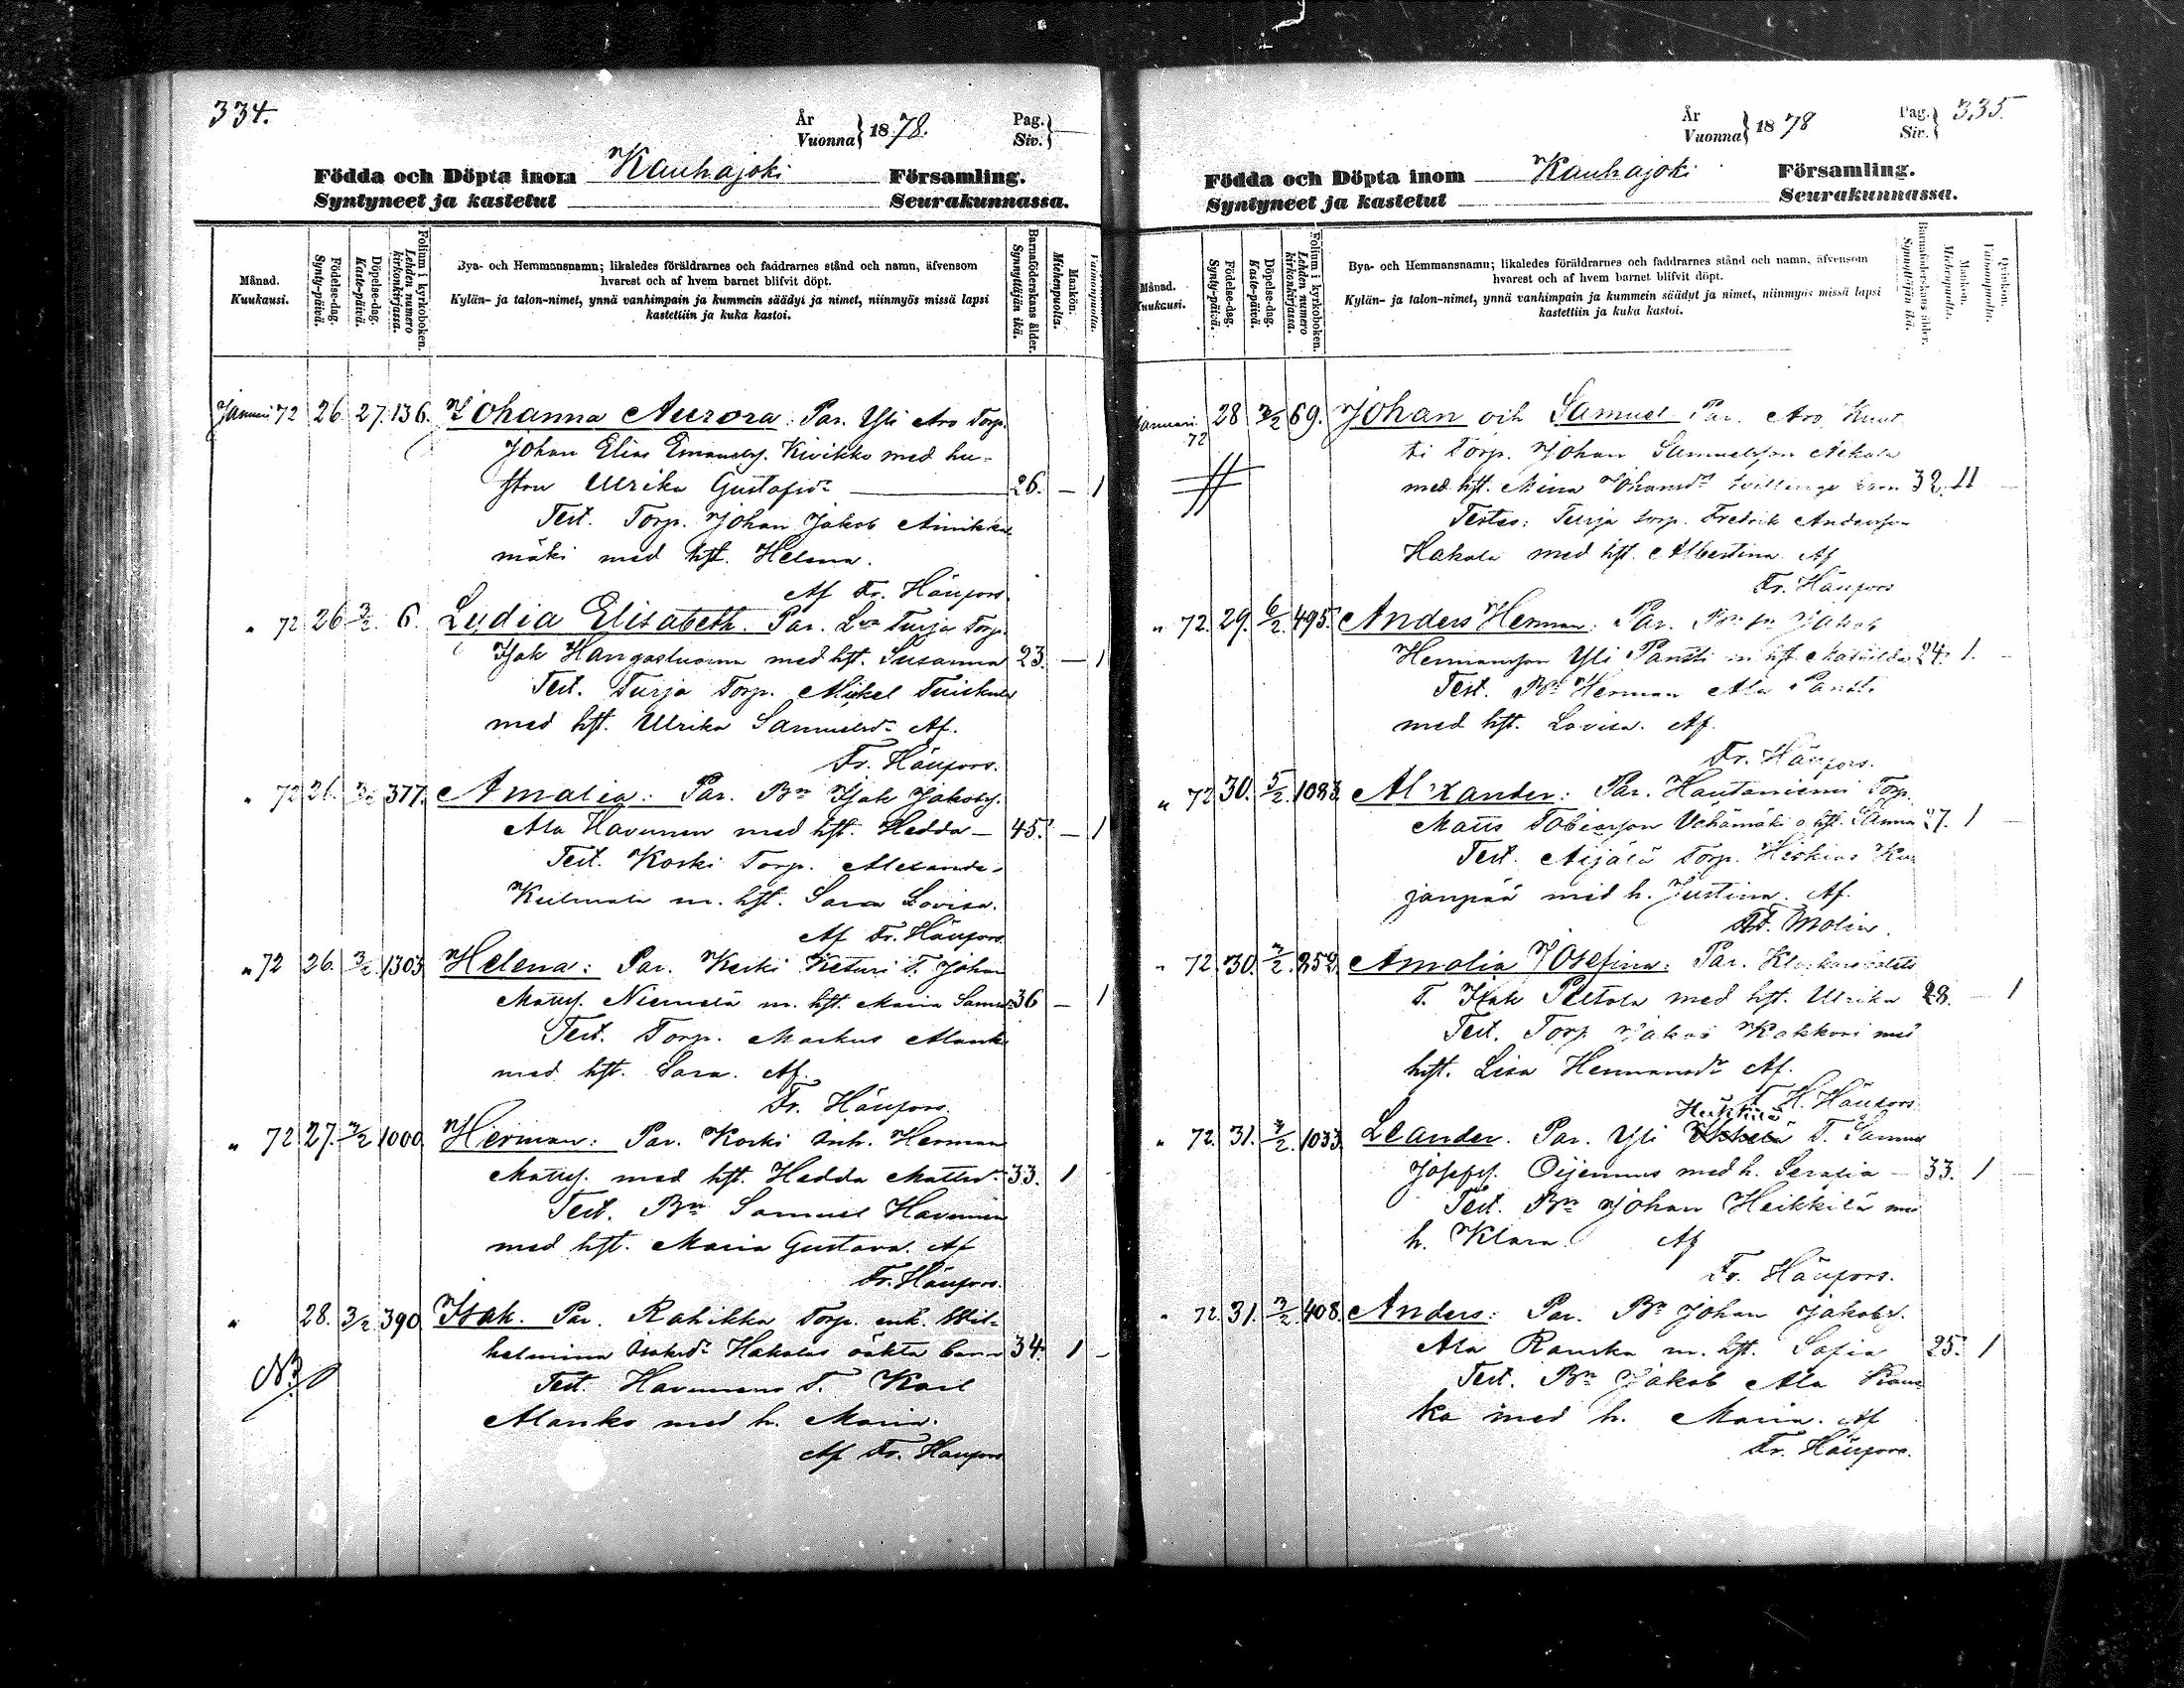 334.
År
Vuonna
1878.
Pag.
Siv.
Födda och Döpta inom Kauhajoki Församling.
Syntyneet ja kastetut Seurakunnassa.
Månad.
Kuukausi.
Födelse-dag.
Synty-päivä.
Döpelse-dag.
Kaste-päivä.
Folium i kyrkoboken.
Lehden numero kirkonkirjassa.
Bya- och Hemmansnamn; likaledes föräldrarnes och faddrarnes stånd och namn, äfvensom
hvarest och af hvem barnet blifvit döpt.
Kylän- ja talon-nimet, ynnä vanhimpain ja kummein säädyt ja nimet, niinmyös missä lapsi
kastettiin ja kuka kastoi.
Barnaföderskans ålder.
Synnyttäjän ikä.
Mankön.
Miehenpuolta.
Vaimonpuolta.
Januari 72 26. 27. 136. Johanna Aurora: Par. Yli Aro Torp.
Johan Elias Emanuelss. Kivikko med hu-
stru Ulrika Gustafsdr 26. — 1
Test. Torp. Johan Jakob
mäki med hst. Helena.
Af Fr. Häufors.
" 72 26 3/2. 6. Lydia Elisabeth. Par. Turja Torp.
Isak Hangasluoma med hst. Susanna 23. — 1
Test. Turja Torp. Mickel
med hst. Ulrika Samuelsdr Af.
Fr. Häufors.
" 72 26. 3/2 377. Amalia: Par. Bn Isak Jakobss.
Ala Havunen med hst. Hedda — 45. — 1
Test. Koski Torp. Alexander
m. hst. Sara Lovisa.
Af Fr. Häufors.
" 72 26. 3/2 1303 Helena: Par. Keski Keturi T. Johan
Mattss. Niemelä m. hst. Maria 36 — 1
Test. Torp. Markus Alanko
med hst. Sara. Af.
Fr. Häufors.
" 72 27. 3/2 1000. Herman: Par. Koski Inh. Herman
Mattss. med hst. Hedda Mattsdr 33. 1
Test. Bn Samuel Havunen
med hst. Maria Gustava. Af
Fr. Häufors.
" 28. 3/2 390 Isak. Par. Rahikka Torp. enk. Wil-
helmina Isaksdr Hakalas oäkta barn 34. 1 -
Test. Havunens T. Karl
Alanko med h. Maria.
Af Fr. Häufors
År
Vuonna
1878
Pag.
Siv.
335.
Födda och Döpta inom Kauhajoki Församling.
Syntyneet ja kastetut Seurakunnassa.
Månad.
Kuukausi.
Födelse-dag.
Synty-päivä.
Döpelse-dag.
Kaste-päivä.
Folium i kyrkoboken.
Lehden numero kirkonkirjassa.
Bya- och Hemmansnamn; likaledes föräldrarnes och faddrarnes stånd och namn, äfvensom
hvarest och af hvem barnet blifvit döpt.
Kylän- ja talon-nimet, ynnä vanhimpain ja kummein säädyt ja nimet, niinmyös missä lapsi
kastettiin ja kuka kastoi.
Barnaföderskans ålder.
Synnyttäjän ikä.
Mankön.
Miehenpuolta.
Qvinkön.
Vaimonpuolta.
Januari 72 28 3/2 69. Johan och Samuel Par. Aro Knut
ti Torp. Johan Samuelsson
med hst. Mina Johansdr tvillinge barn 32. 11
Testes: Turja torp. Fredrik Andersson
Hakala med hst. Albertina Af
Fr. Häufors
" 72. 29. 6/2. 495. Anders Herman: Par. Jakob
Hermansson Yli Pantti m. hst Mathilda 24. 1.
Test. Bn Herman Ala Pantti
med hst. Lovisa. Af.
Fr. Häufors.
" 72 30. 5/2. 1083. Alexander: Par. Hautaniemi Torp.
Matts Tobiasson Vähämäki o. hst. Sanna 27. 1
Test. Äijälä Torp. Heskias Ku-
janpää med h. Justina. Af.
Molin.
" 72 30. 3/2. 252 Amalia Josefina: Par.
T. Isak Peltola med hst. Ulrika 28. — 1
Test. Torp Jakob Kakkori med
hst. Lisa Hermansdr Af.
Häufors
" 72. 31. 3/2. 1033. Leander. Par. Yli Heikkilä T. Samuel
Josefss. med h. Serafia — 33. 1
Test. Bn Johan Heikkilä med
h. Klara. Af
Fr. Häufors.
" 72. 31. 3/2. 408. Anders: Par. Bn Johan Jakobss.
Ala Ranska m. hst. Sofia 25. 1
Test. Bn Jakob Ala Rans
ka med h. Maria. Af
Fr. Häufors.